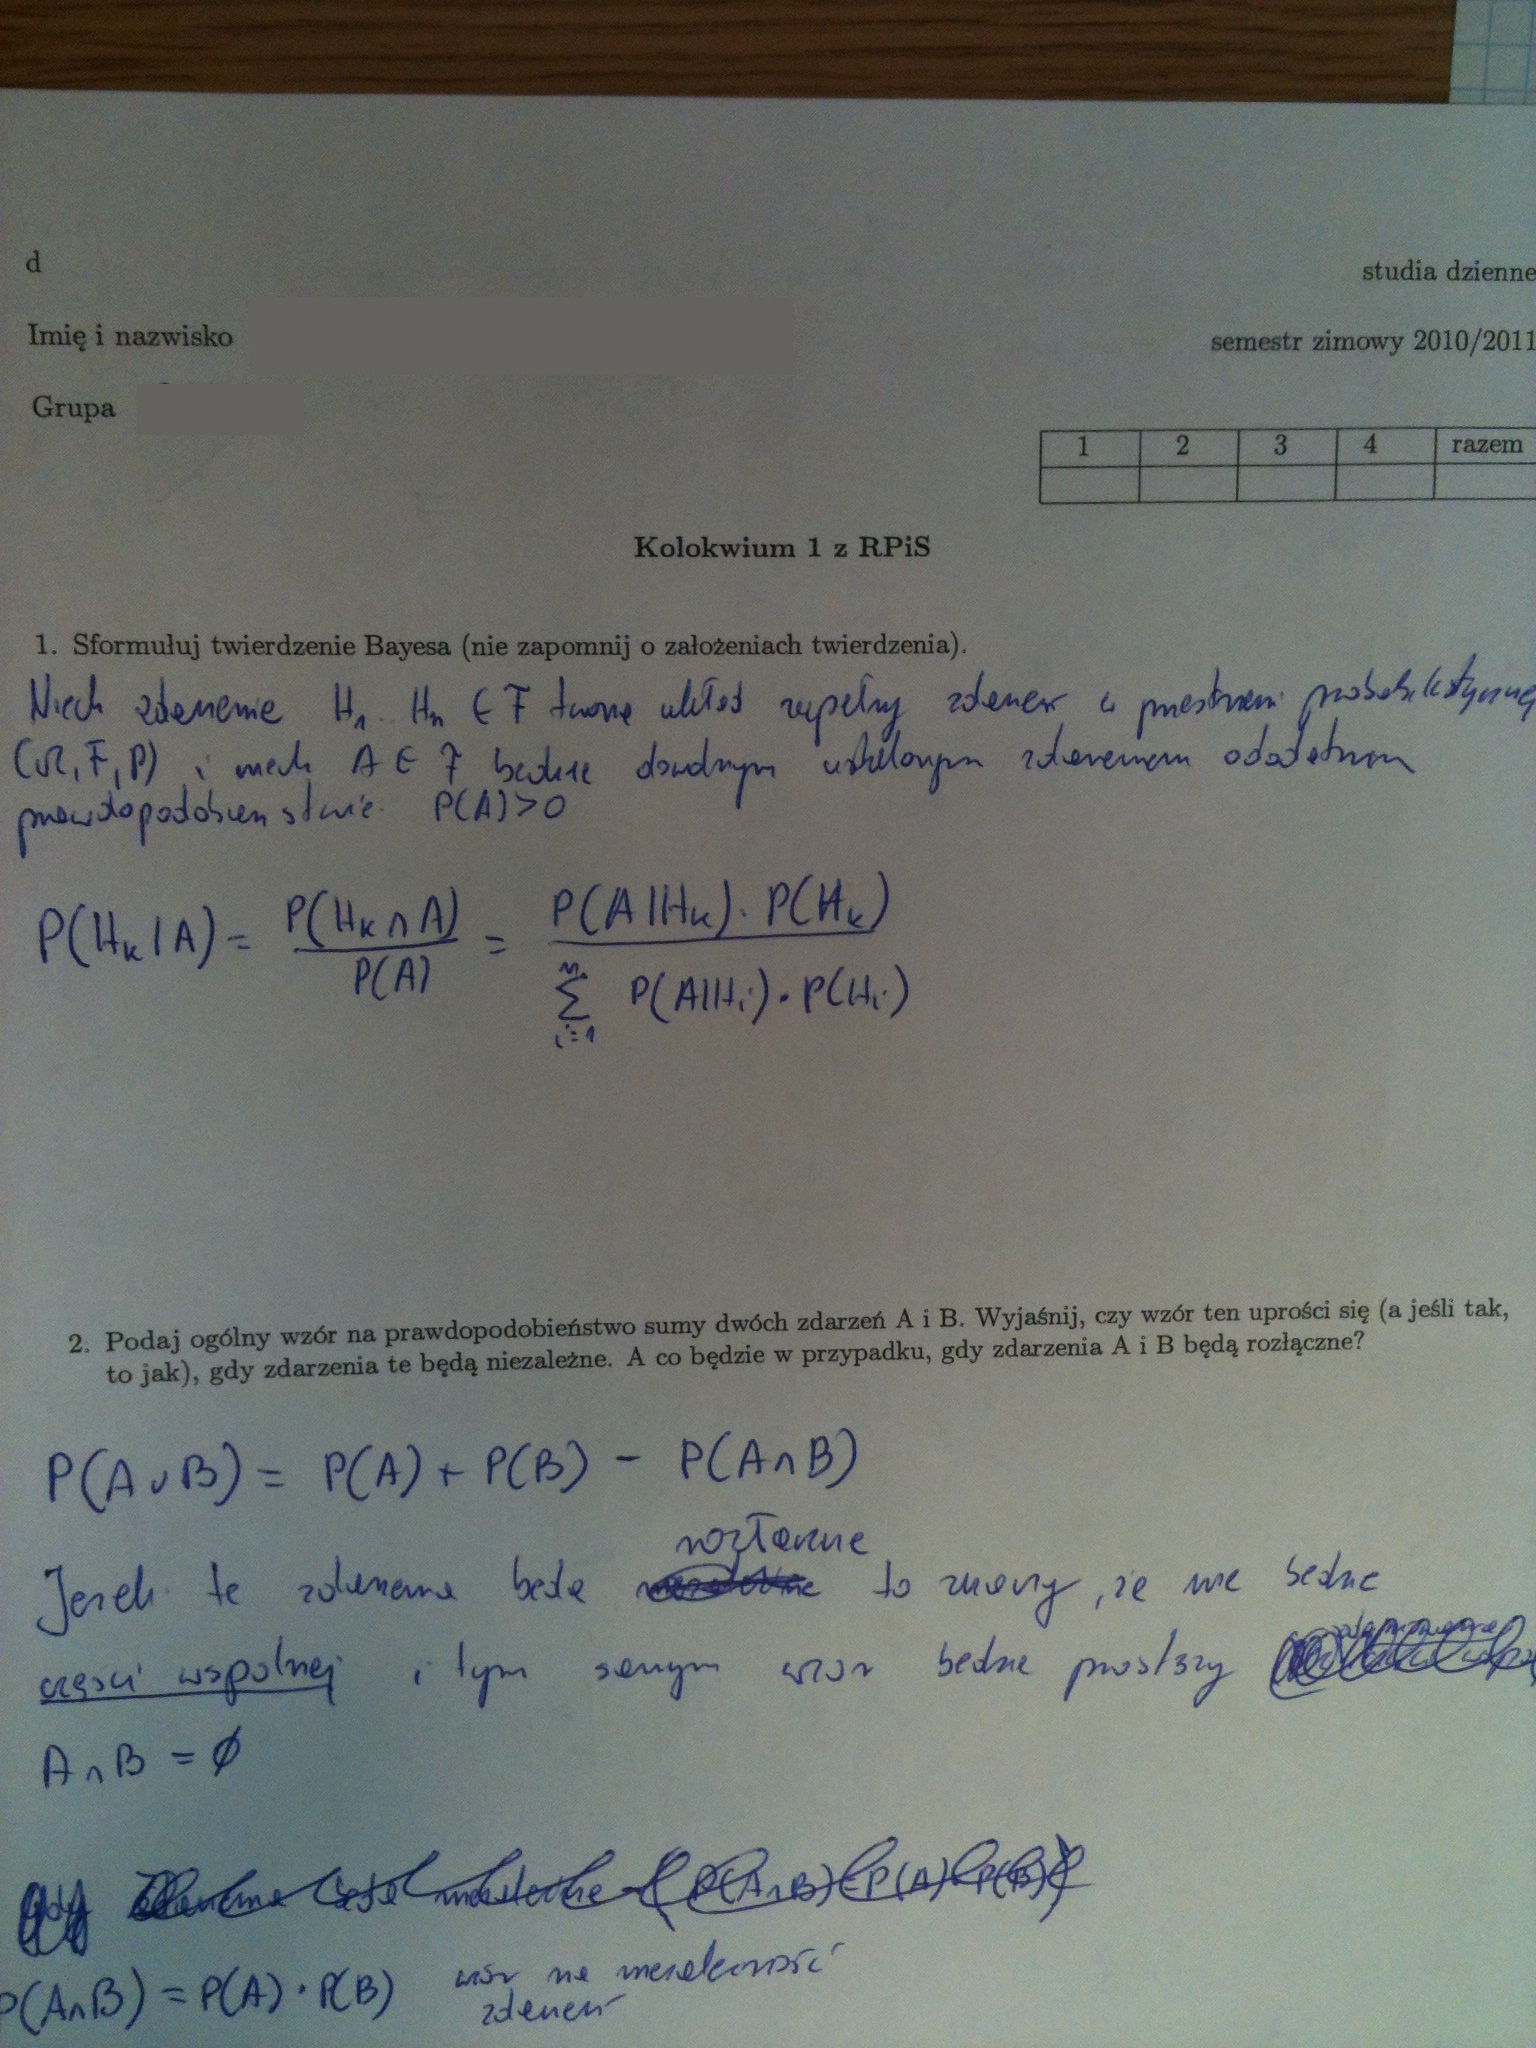 d
studia dzienne
Imię i nazwisko
semestr zimowy 2010/2011
Grupa
1 2 3 4 razem
Kolokwium 1 z RPiS
1. Sformułuj twierdzenie Bayesa (nie zapomnij o założeniach twierdzenia).
Niech zdarzenie H₁ .. Hₙ ∈ F tworzą układ zupełny zdarzeń w przestrzeni probabilistycznej
(Ω, F, P) i niech A ∈ F będzie dowolnym ustalonym zdarzeniem o dodatnim
prawdopodobieństwie. P(A)>0
P(Hₖ|A) = P(Hₖ∩A) / P(A) = P(A|Hₖ)·P(Hₖ) / ∑ᵢ₌₁ⁿ P(A|Hᵢ)·P(Hᵢ)
2. Podaj ogólny wzór na prawdopodobieństwo sumy dwóch zdarzeń A i B. Wyjaśnij, czy wzór ten uprości się (a jeśli tak,
to jak), gdy zdarzenia te będą niezależne. A co będzie w przypadku, gdy zdarzenia A i B będą rozłączne?
P(A∪B) = P(A) + P(B) - P(A∩B)
rozłączne
Jeżeli te zdarzenia będą to znaczy, że nie będzie
części wspolnej i tym samym wzór będzie prostszy
A∩B = ∅
P(A∩B) = P(A)·P(B) wzór na niezależność
zdarzeń